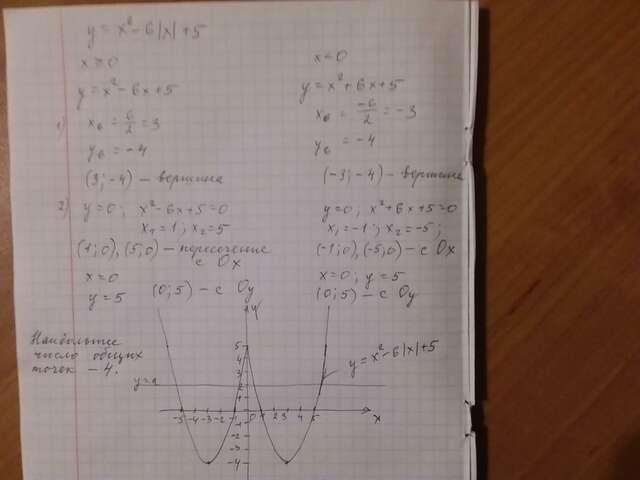 y = x² - 6|x| + 5
x ≥ 0
y = x² - 6x + 5
1) x₆ = 6/2 = 3
y₆ = -4
(3; -4) - вершина
2) y = 0; x² - 6x + 5 = 0
x₁ = 1; x₂ = 5
(1; 0), (5; 0) - пересечение
с Ox
x = 0
y = 5
(0; 5) - с Oy
x < 0
y = x² + 6x + 5
x₆ = -6/2 = -3
y₆ = -4
(-3; -4) - вершина
y = 0; x² + 6x + 5 = 0
x₁ = -1; x₂ = -5;
(-1; 0), (-5; 0) - с Ox
x = 0; y = 5
(0; 5) - с Oy
Наибольшее
число общих
точек - 4.
y = a
y
5
4
3
2
1
-5 -4 -3 -2 -1 0 1 2 3 4 5 x
-1
-2
-3
-4
y = x² - 6|x| + 5